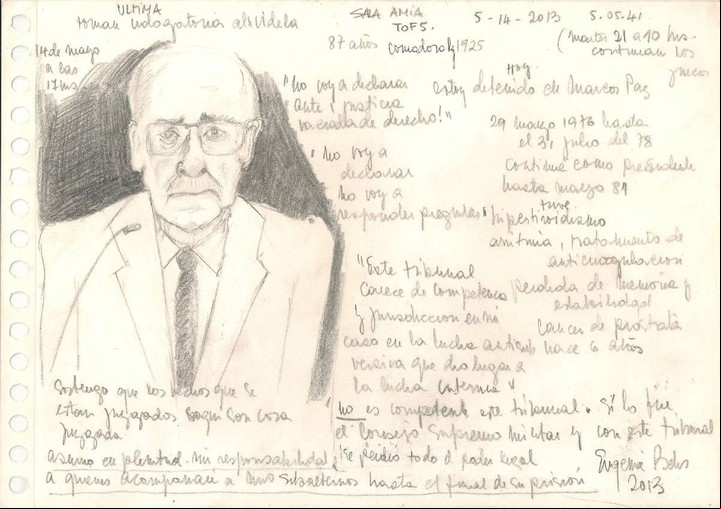 ULTIMA
toman indagatoria a Videla
SALA AMIA
TOF5.
5-14-2013
5.05.41
14 de mayo
a las
17 hs
87 años
1925
(martes 21 a 10 hs.
continuan los
juicios
"no voy a declarar
ante justicia
de derecho!"
Hoy
estoy detenido de Marcos Paz
29 marzo 1976 hasta
el 31 julio del 78
continué como presidente
hasta marzo 81
"no voy a
declarar
no voy a
responder preguntas"
tuve
hipertiroidismo
arritmia, tratamiento de
anticoagulacion
perdida de memoria y
estabilidad
cancer de prostata
hace 6 años
"Este tribunal
carece de competencia
y jurisdiccion en mi
caso en la lucha antisub
versiva que dio lugar a
la lucha interna"
Sostengo que los hechos que se
estan juzgados aqui son cosa
juzgada
no es competente este tribunal. Si lo fue
el Consejo Supremo militar y con este tribunal
asumo en plenitud mi responsabilidad
se perdio todo el poder legal
a quienes acompañaré a mis subalternos hasta el final de su prisión
Eugenia Bekeris
2013